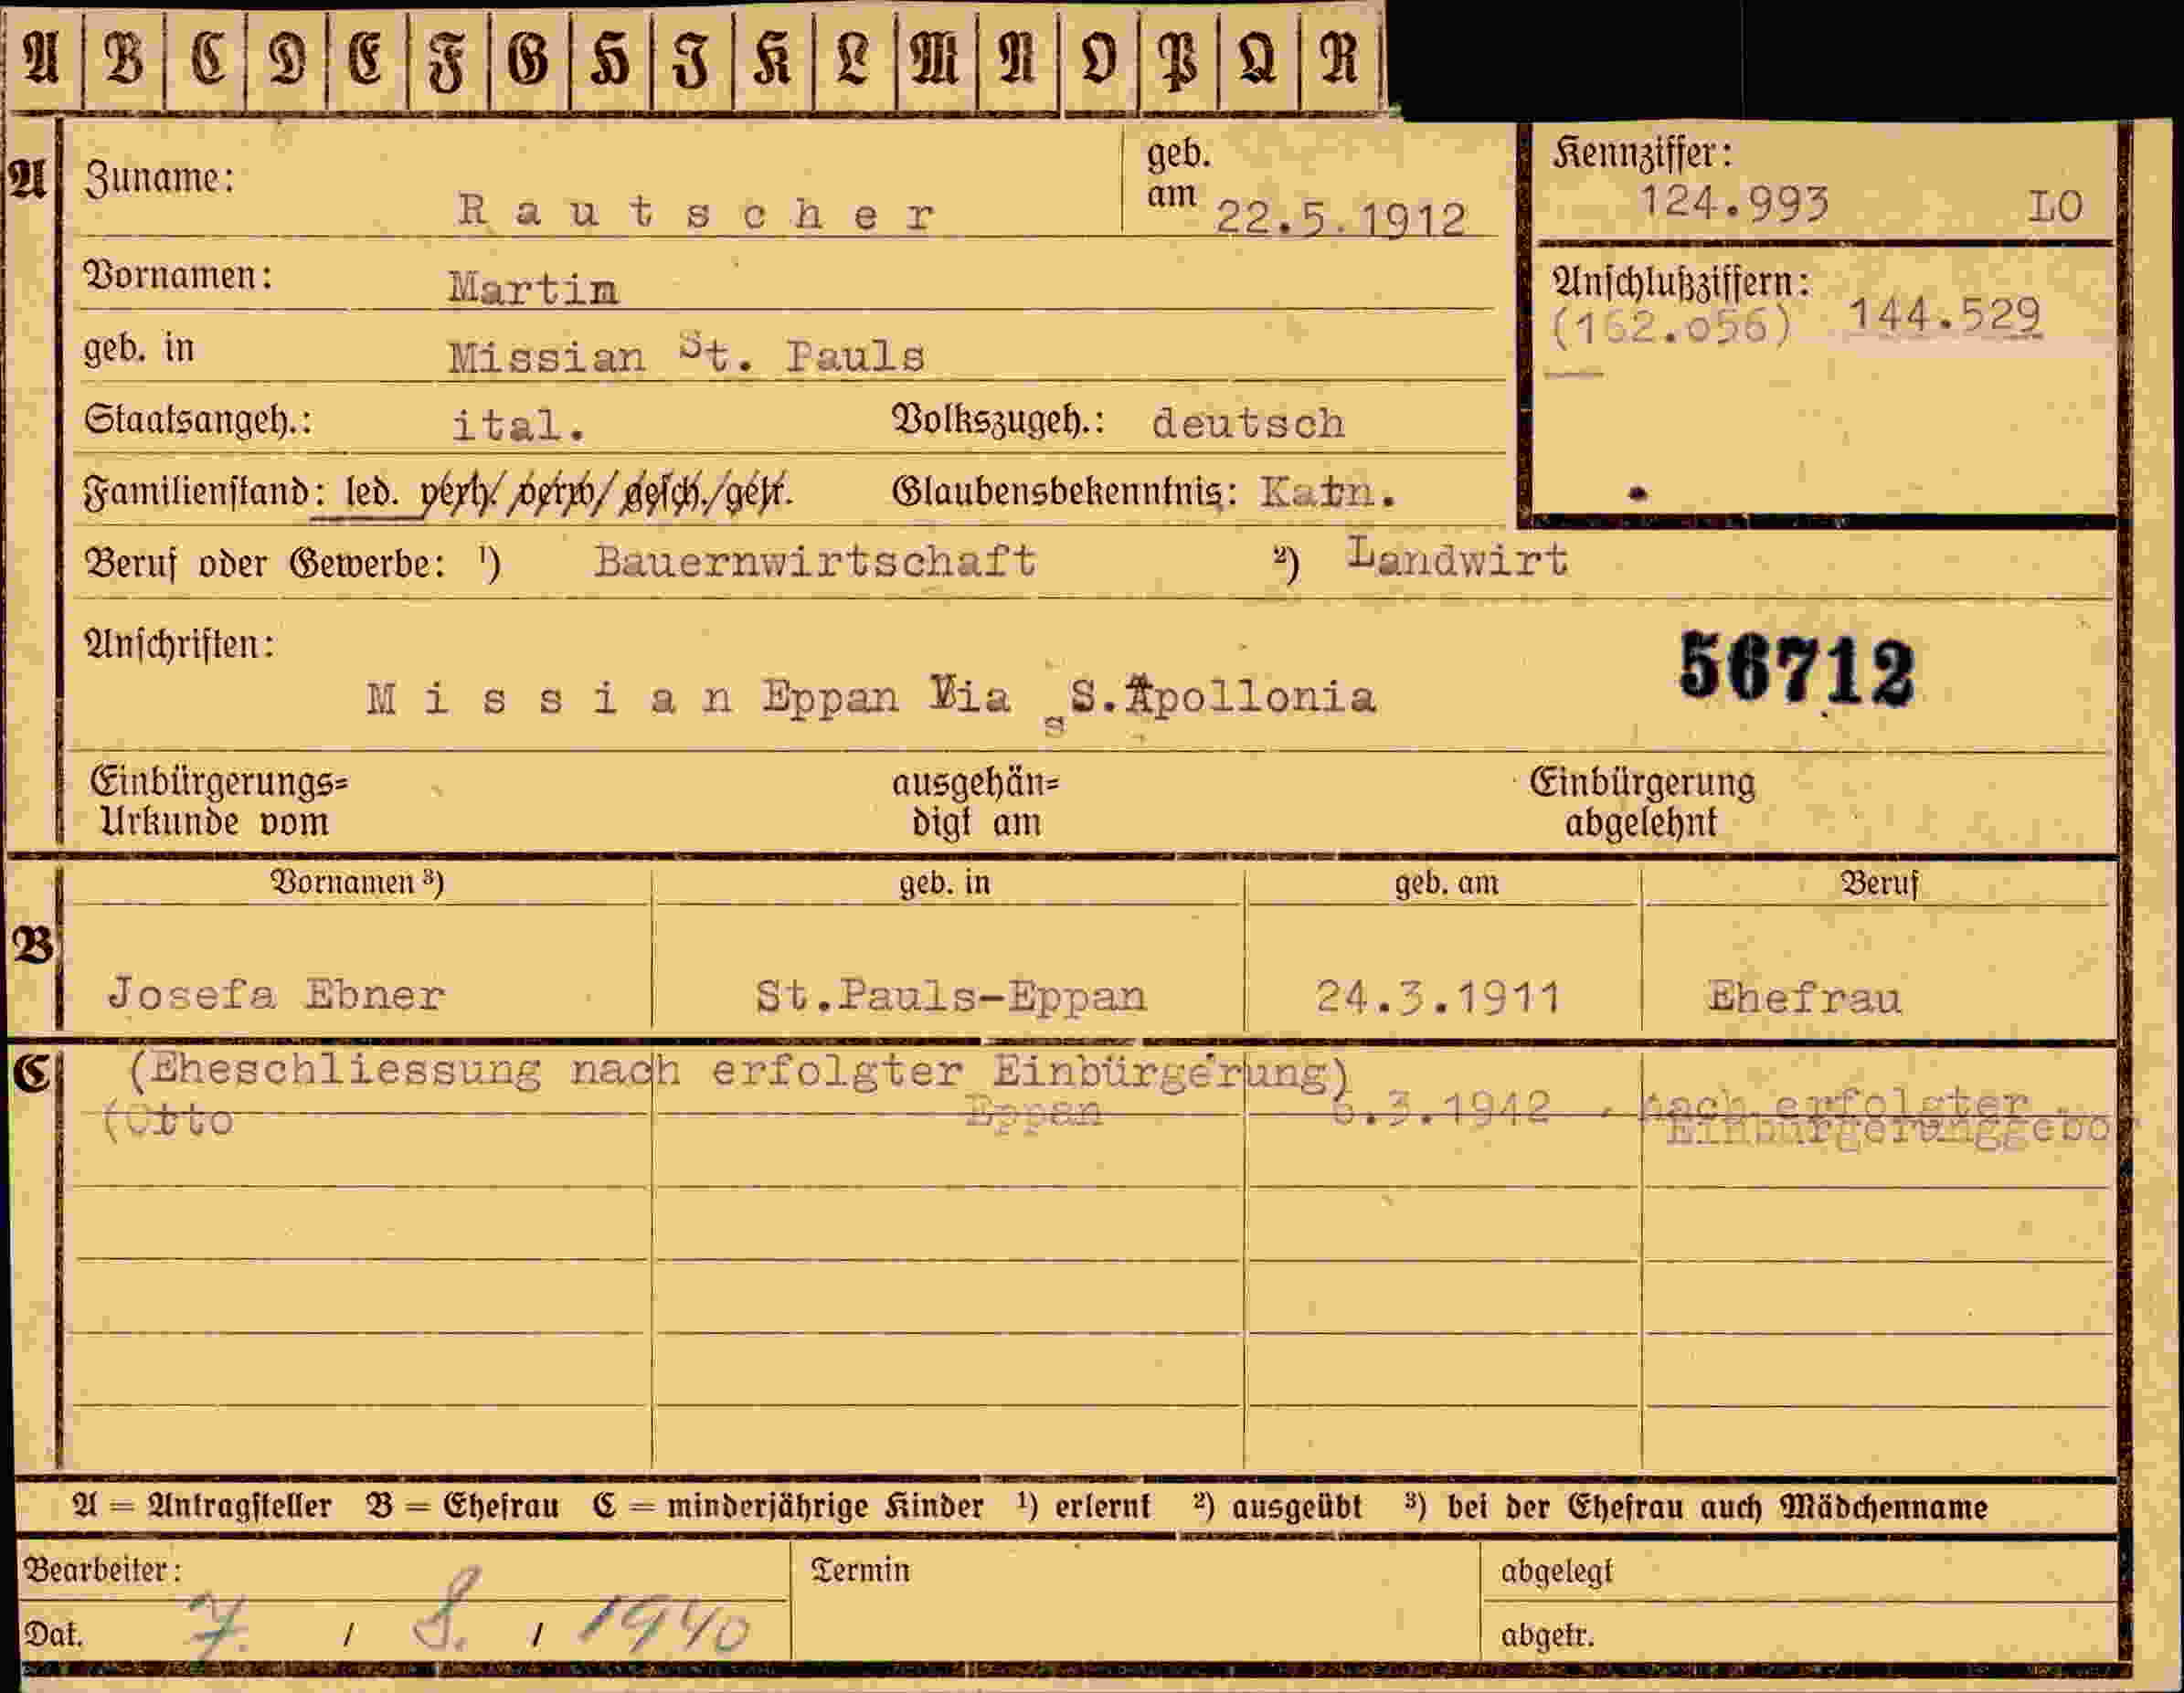 A B C D E F G H I K L M N O P Q R
A Zuname: Rautscher geb. am 22.5.1912
Kennziffer: 124.993 LO
Vornamen: Martin
Anschlußziffern: (162.056) 144.529
geb. in Missian St. Pauls
Staatsangeh.: ital. Volkszugeh.: deutsch
Familienstand: led. verh./verw/gesch./getr. Glaubensbekenntnis: Kath.
Beruf oder Gewerbe: ¹) Bauernwirtschaft ²) Landwirt
Anschriften:
56712
Missian Eppan Via S.Apollonia
s
Einbürgerungs= ausgehän= Einbürgerung
Urkunde vom digt am abgelehnt
Vornamen ³) geb. in geb. am Beruf
B
Josefa Ebner St.Pauls-Eppan 24.3.1911 Ehefrau
C (Eheschliessung nach erfolgter Einbürgerung)
(Otto Eppan 6.3.1942 nach erfolgter
Einbürgerunggebo
A = Antragsteller B = Ehefrau C = minderjährige Kinder ¹) erlernt ²) ausgeübt ³) bei der Ehefrau auch Mädchenname
Bearbeiter: Termin abgelegt
Dat. 7. / 8. / 1940 abgetr.